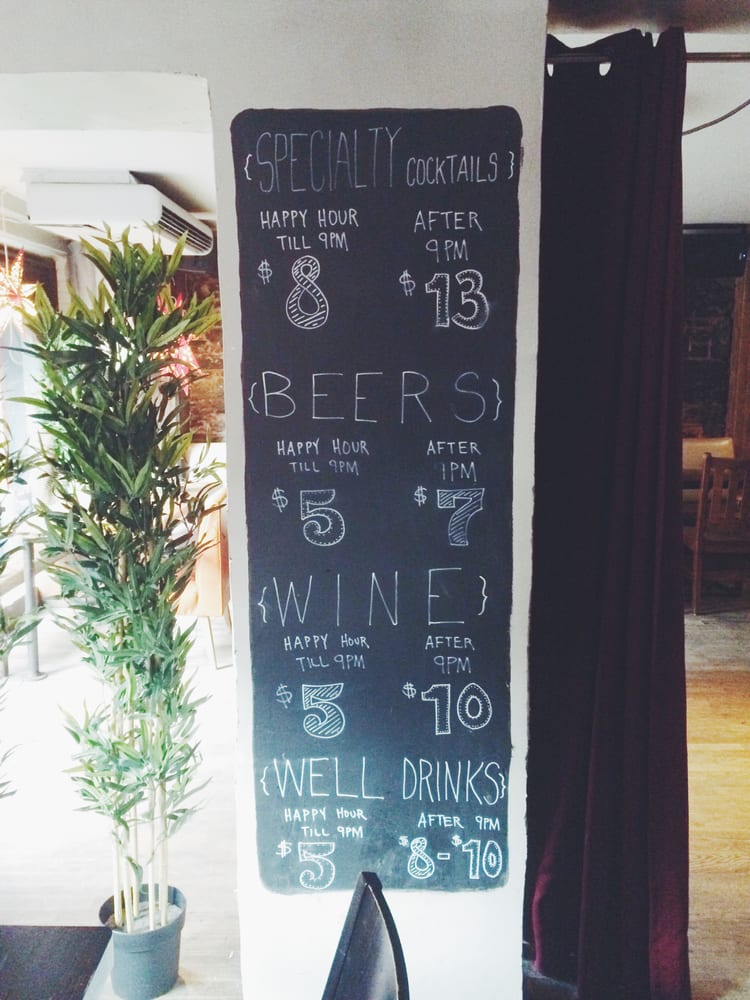 { SPECIALTY COCKTAILS }
HAPPY HOUR AFTER
TILL 9PM 9PM
$8 $13
{ BEERS }
HAPPY HOUR AFTER
TILL 9PM 9PM
$5 $7
{ WINE }
HAPPY HOUR AFTER
TILL 9PM 9PM
$5 $10
{ WELL DRINKS }
HAPPY HOUR AFTER 9PM
TILL 9PM
$5 $8-$10